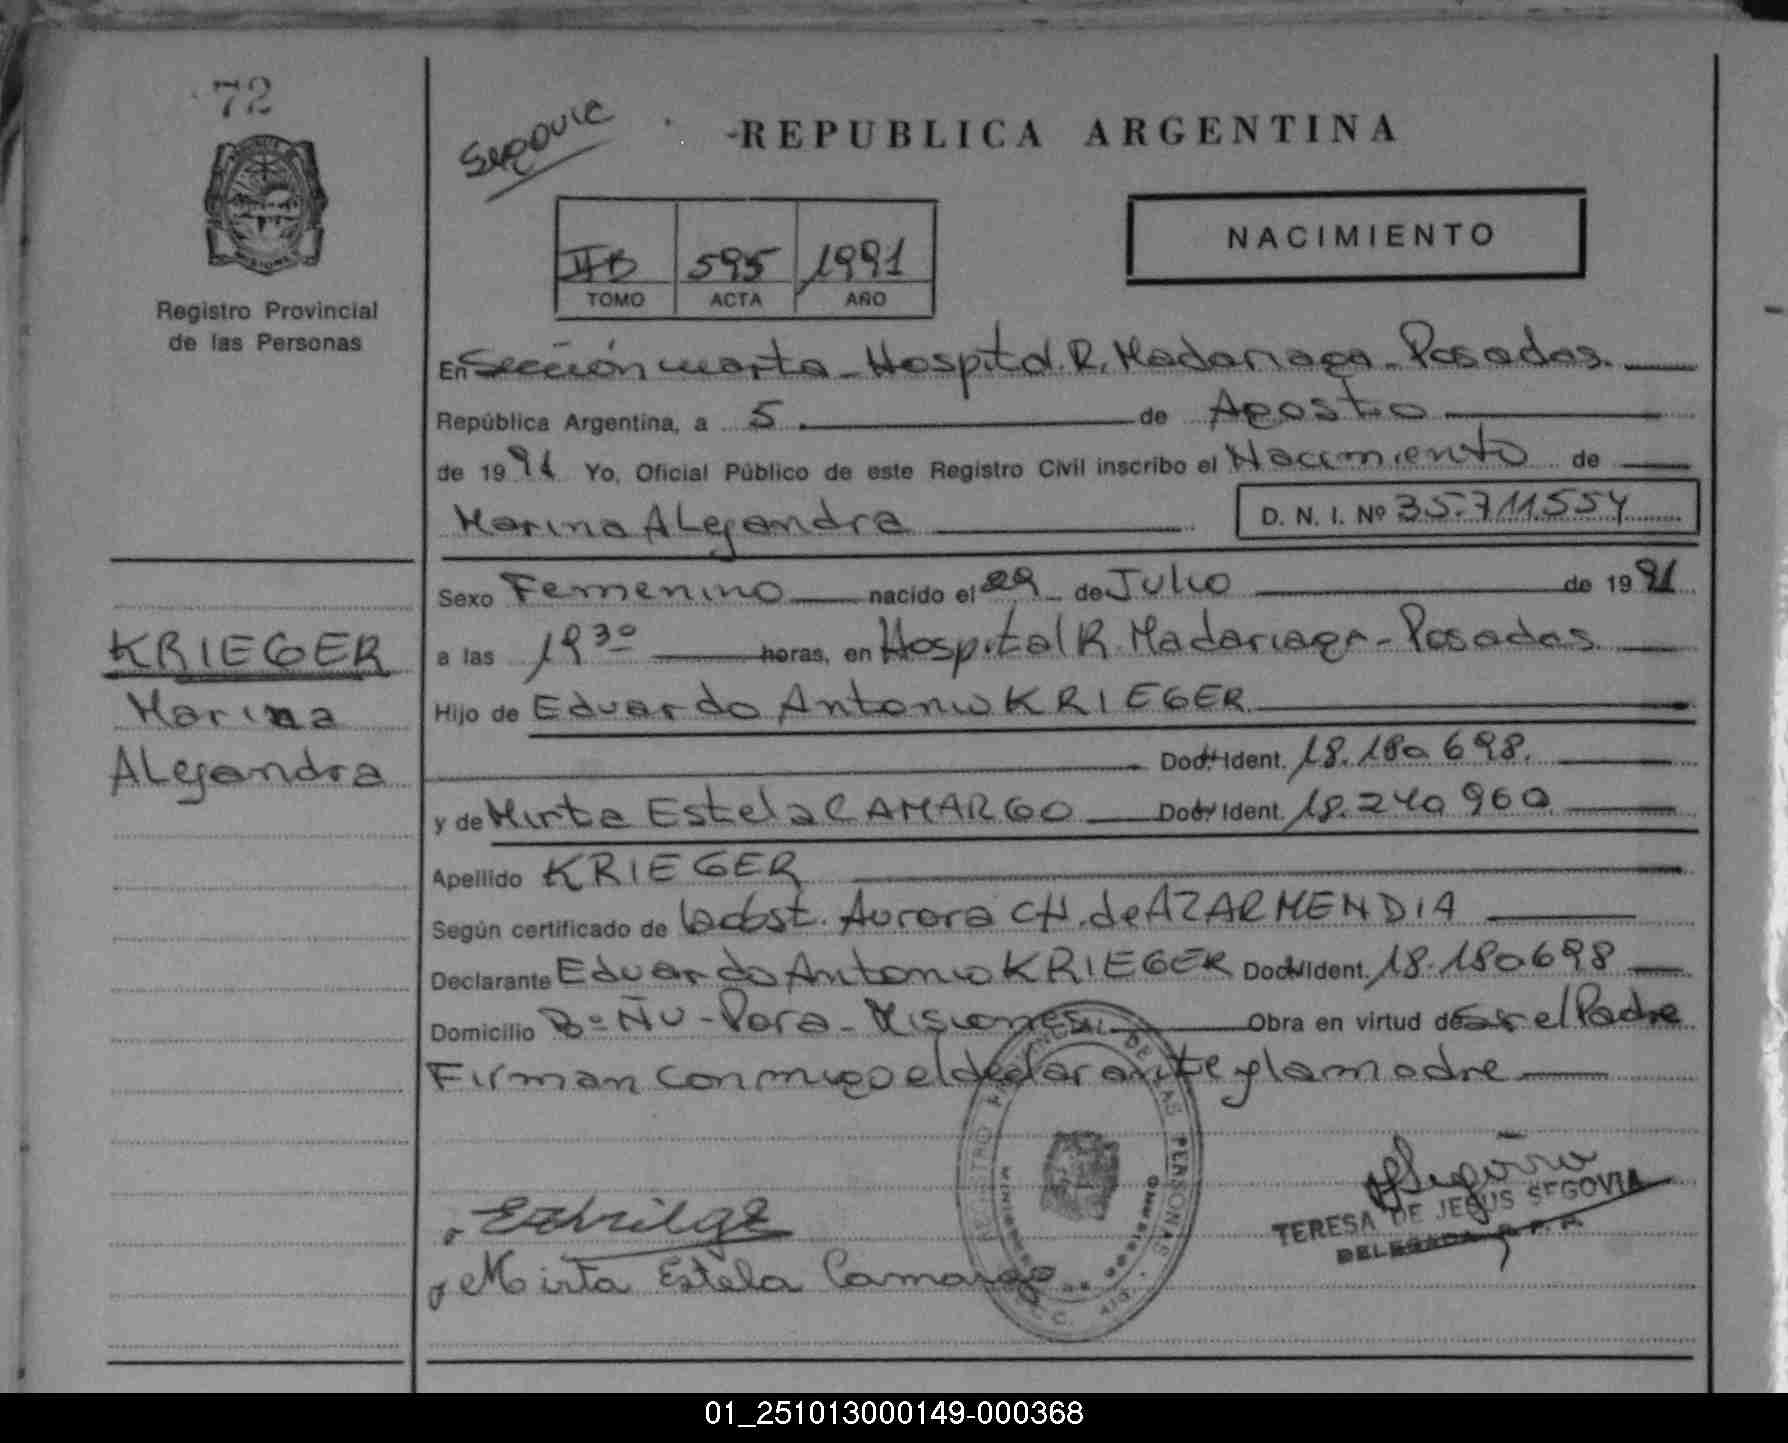 72
Segovia
REPUBLICA ARGENTINA
NACIMIENTO
IIB 595 1991
TOMO ACTA AÑO
Registro Provincial
de las Personas
En Sección cuarta - Hospital R. Madariaga - Posadas.
República Argentina, a 5 de Agosto
de 1991 Yo, Oficial Público de este Registro Civil inscribo el Nacimiento de
Marina Alejandra D. N. I. Nº 35.711.554
Sexo Femenino nacido el 29 de Julio de 1991
KRIEGER
Marina
Alejandra
a las 19 30 horas, en Hospital R. Madariaga - Posadas
Hijo de Eduardo Antonio KRIEGER
Ident. 18.180.698.
y de Mirta Estela CAMARGO Ident. 18.240.960
Apellido KRIEGER
Según certificado de la obst. Aurora CH. de AZARMENDIA
Declarante Eduardo Antonio KRIEGER Ident. 18.180.698
Domicilio Bº Ñu - Pora - Misiones Obra en virtud de ser el Padre
Firman conmigo el declarante y la madre
REGISTRO PROVINCIAL DE LAS PERSONAS
Mirta Estela Camargo
TERESA DE JESUS SEGOVIA
DELEGADA R. P. P.
01_251013000149-000368